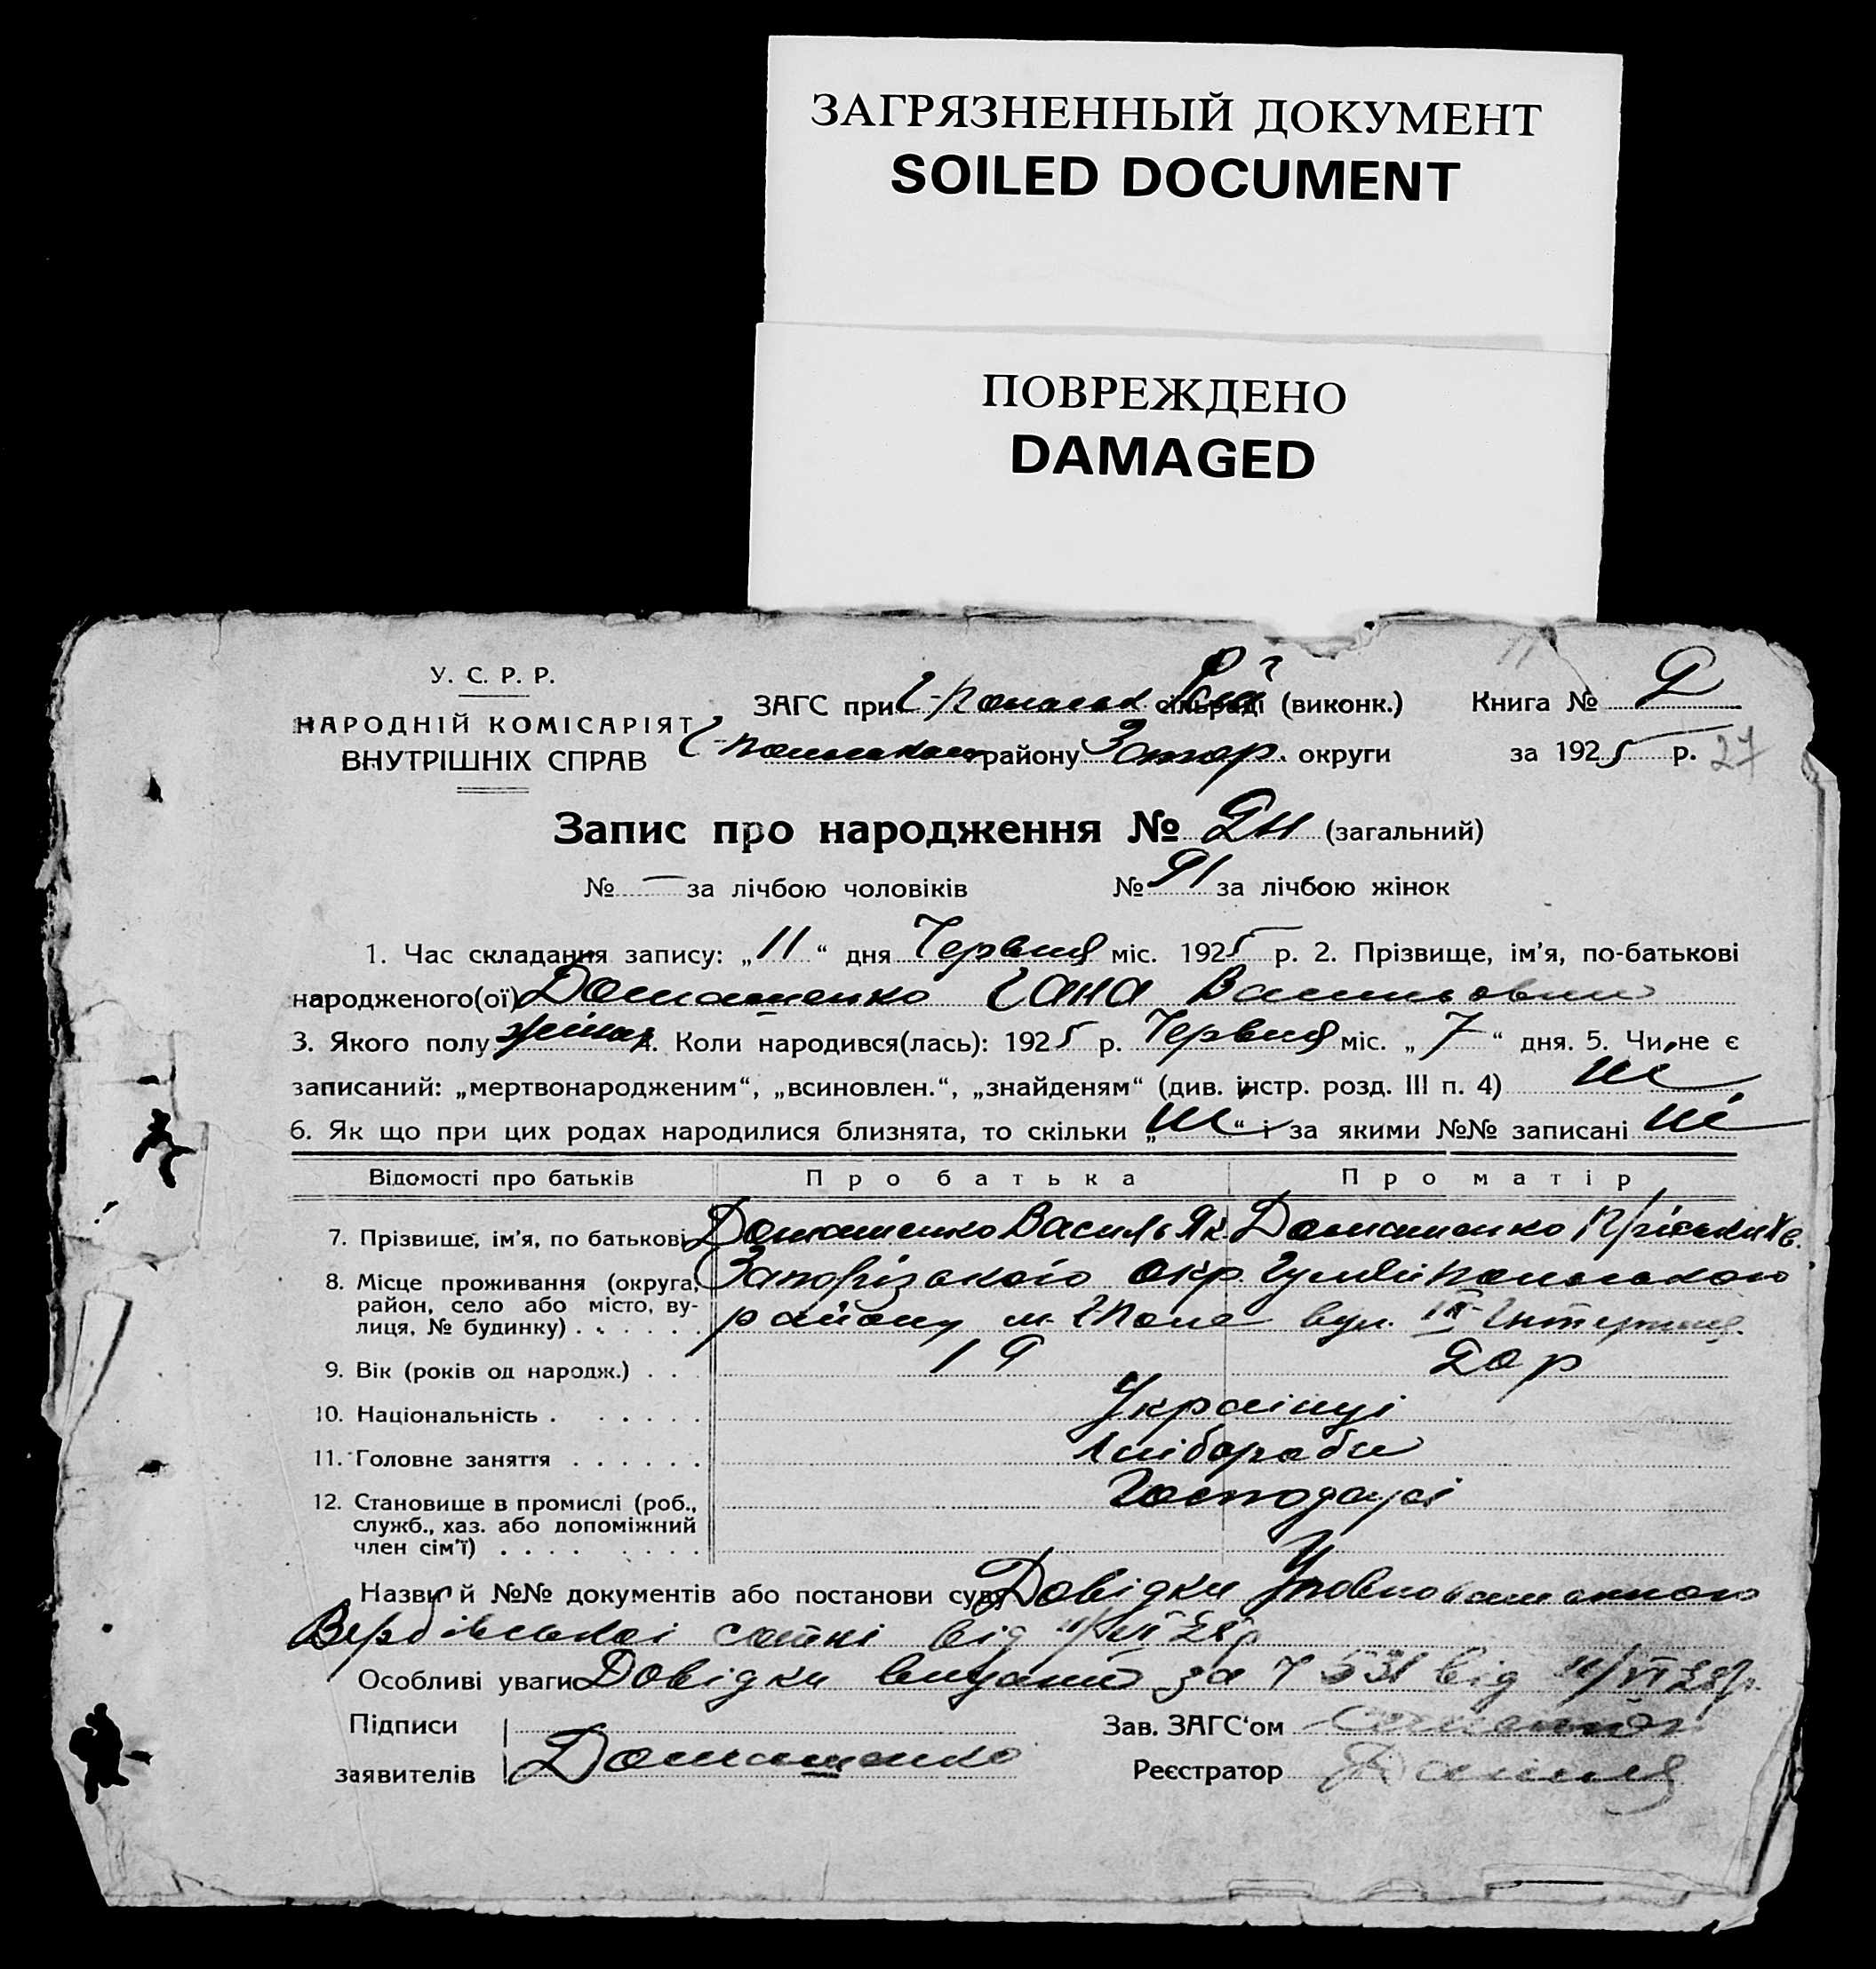 ЗАГРЯЗНЕННЫЙ ДОКУМЕНТ
SOILED DOCUMENT
ПОВРЕЖДЕНО
DAMAGED
У. С. Р. Р.
НАРОДНІЙ КОМІСАРІЯТ
ВНУТРІШНІХ СПРАВ
ЗАГС при сільраді (виконк.) Книга № 2
району Запор. округи за 1925 р. 27
Запис про народження № (загальний)
№ — за лічбою чоловіків № 91 за лічбою жінок
1. Час складання запису: „11“ дня Червня міс. 1925 р. 2. Прізвище, ім’я, по-батькові
народженого(ої) Домашенко Гана Васильовна
3. Якого полу жіноч. 4. Коли народився(лась): 1925 р. Червня міс. „7“ дня. 5. Чи не є
записаний: „мертвонародженим“, „всиновлен.“, „знайденям“ (див. інстр. розд. III п. 4) ні
6. Як що при цих родах народилися близнята, то скільки „ні“ і за якими №№ записані ні
Відомості про батьків Про батька Про матір
7. Прізвище, ім’я, по батькові Домашенко Василь Як. Домашенко
8. Місце проживання (округа, район, село або місто, вулиця, № будинку) Запорізького окр. Гуляйпольського
району м. Г-Поле вул. III Інтернац.
9. Вік (років од народж.) 19 20 р
10. Національність Українці
11. Головне заняття Хлібороби
12. Становище в промислі (роб., служб., хаз. або допоміжний член сім’ї) Господарі
Назви й №№ документів або постанови суду Довідки Уповноваженного
Вербівської сотні від 11/VI 25 р
Особливі уваги Довідки видані за № 531 від 11/VI 25 р.
Підписи
заявителів Домашенко
Зав. ЗАГС‘ом
Реєстратор